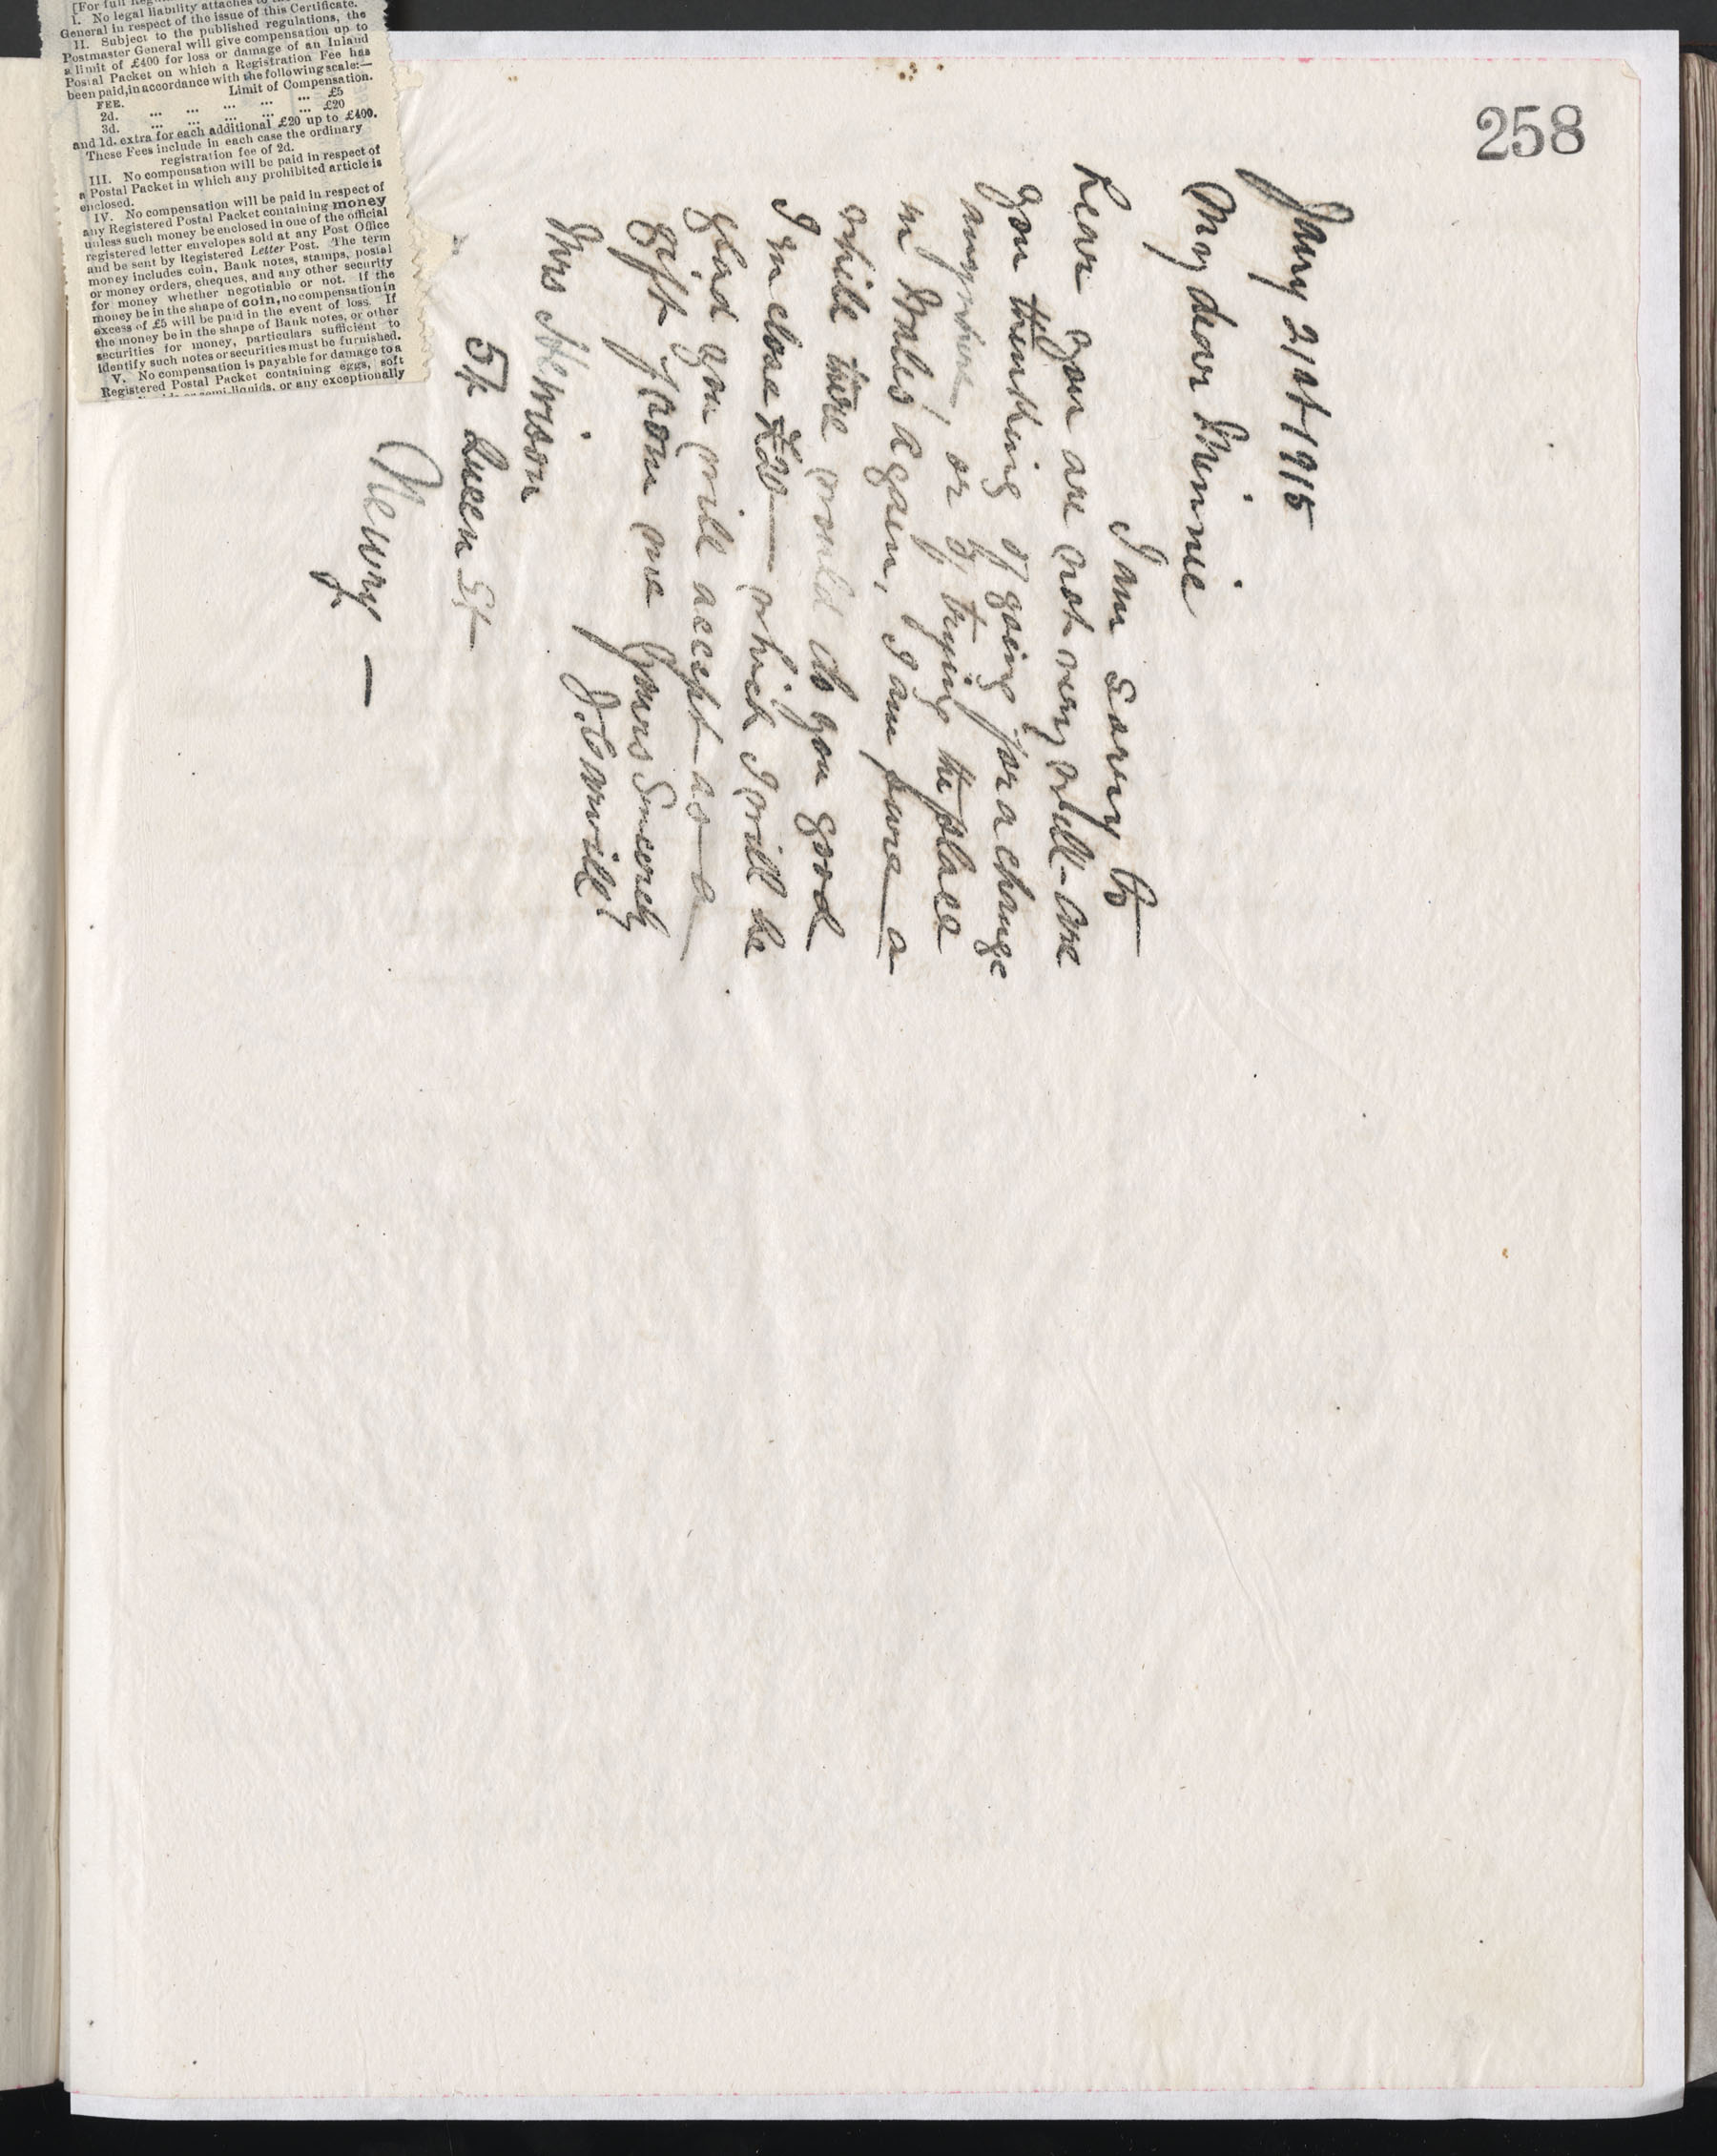 258
Jany 21st 1915
My dear Minnie
I am sorry to
hear you are not very well - are
you thinking of going for a change
anywhere or of trying the place
in Wales again, I am sure a
while there would do you good
I enclose £20 — which I will be
glad you will accept as a
gift from me Yours Sincerely
Mrs Hewison
54 Queen St
Newry —
I. No legal liability attaches to
General in respect of the issue of this Certificate.
II. Subject to the published regulations, the
Postmaster General will give compensation up to
a limit of £400 for loss or damage of an Inland
Postal Packet on which a Registration Fee has
been paid, in accordance with the following scale:—
FEE. Limit of Compensation.
2d. ... ... ... ... ... £5
3d. ... ... ... ... ... £20
and 1d. extra for each additional £20 up to £400.
These Fees include in each case the ordinary
registration fee of 2d.
III. No compensation will be paid in respect of
a Postal Packet in which any prohibited article is
enclosed.
IV. No compensation will be paid in respect of
any Registered Postal Packet containing money
unless such money be enclosed in one of the official
registered letter envelopes sold at any Post Office
and be sent by Registered Letter Post. The term
money includes coin, Bank notes, stamps, postal
or money orders, cheques, and any other security
for money whether negotiable or not. If the
money be in the shape of coin, no compensation in
excess of £5 will be paid in the event of loss. If
the money be in the shape of Bank notes, or other
securities for money, particulars sufficient to
identify such notes or securities must be furnished.
V. No compensation is payable for damage to a
Registered Postal Packet containing eggs, soft
liquids, or any exceptionally